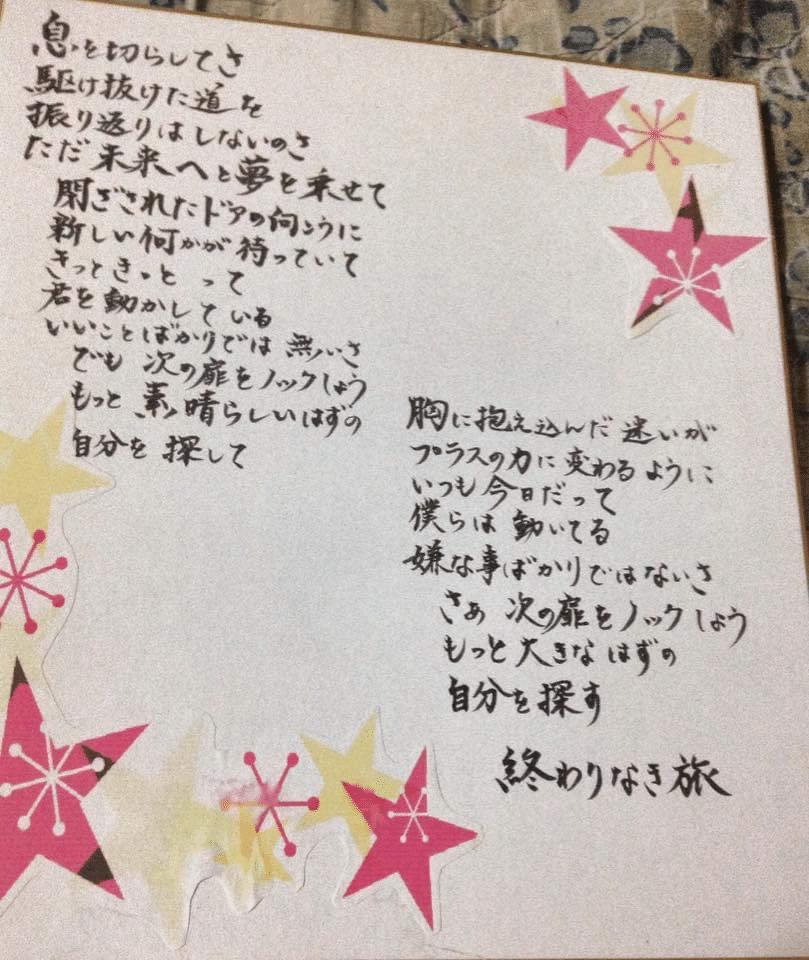 息を切らしてさ
駆け抜けた道を
振り返りはしないのさ
ただ未来へと夢を乗せて
閉ざされたドアの向こうに
新しい何かが待っていて
きっときっとって
君を動かしている
いいことばかりでは無いさ
でも次の扉をノックしよう
もっと素晴らしいはずの
自分を探して
胸に抱え込んだ迷いが
プラスの力に変わるように
いつも今日だって
僕らは動いてる
嫌な事ばかりではないさ
さぁ次の扉をノックしよう
もっと大きなはずの
自分を探す
終わりなき旅